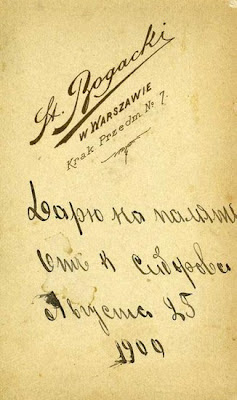 St. Rogacki
W WARSZAWIE
Krak Przedm № 7.
Дарю на память
Отъ К
Августа 25
1900